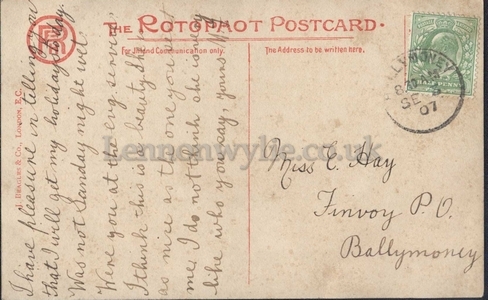 THE ROTOPHOT POSTCARD.
For Inland Communication only.
The Address to be written here.
J. BEAGLES & CO., LONDON, E.C.
I have pleasure in telling you
that I will get my holiday to-day.
Was not Sunday night wet.
Were you at the evg. service
I think this is a beauty, tho
as nice as the one you sent
me. I do not think she is
like who you say, yours
BALLYMONEY
SE
07
HALF PENNY
Miss E. Hay
Finvoy P.O.
Ballymoney
Lennonwylie.co.uk